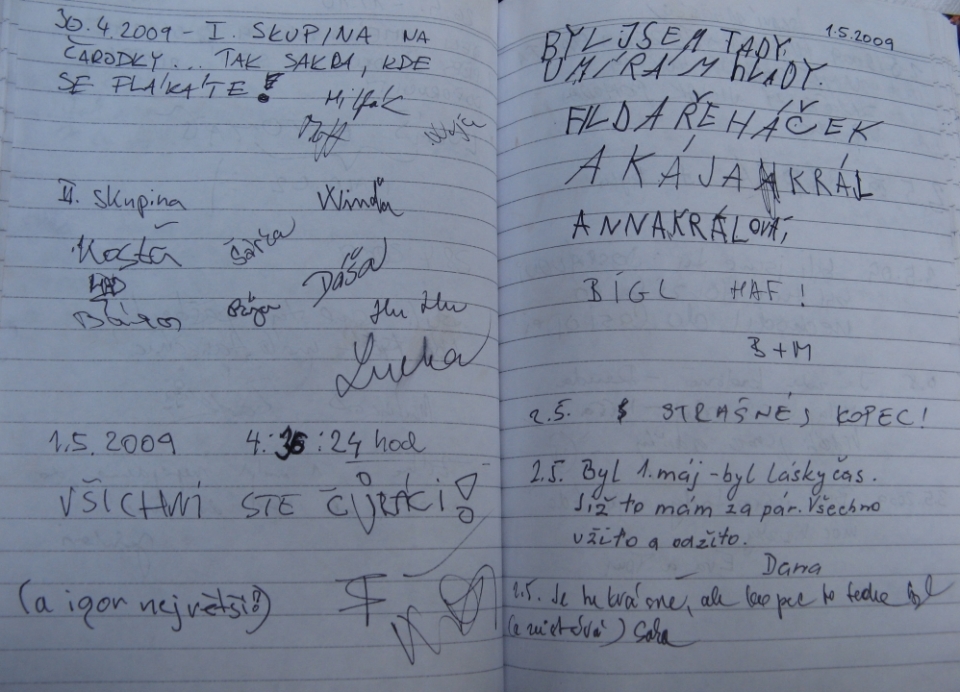 30.4.2009 - I. SKUPINA NA
ČARODKY... TAK SAKRA, KDE
SE FLÁKÁTE!
II. skupina
Winda
Kosťa
Šárka
Dáša
Lucka
1.5.2009 4:36:24 hod
VŠICHNI STE ČŮRÁCI!
(a igor největší!)
1.5.2009
BYL JSEM TADY.
UMÍRÁM HLADY.
FILDA ŘEHÁČEK
A KÁJA KRÁL
ANNA KRÁLOVÁ,
BÍGL HAF!
B+M
2.5. STRAŠNEJ KOPEC!
2.5. Byl 1. máj - byl lásky čas.
Již to mám za pár. Všechno
užito a odžito.
Dana
2.5. Je tu krásně, ale kopec to teda byl